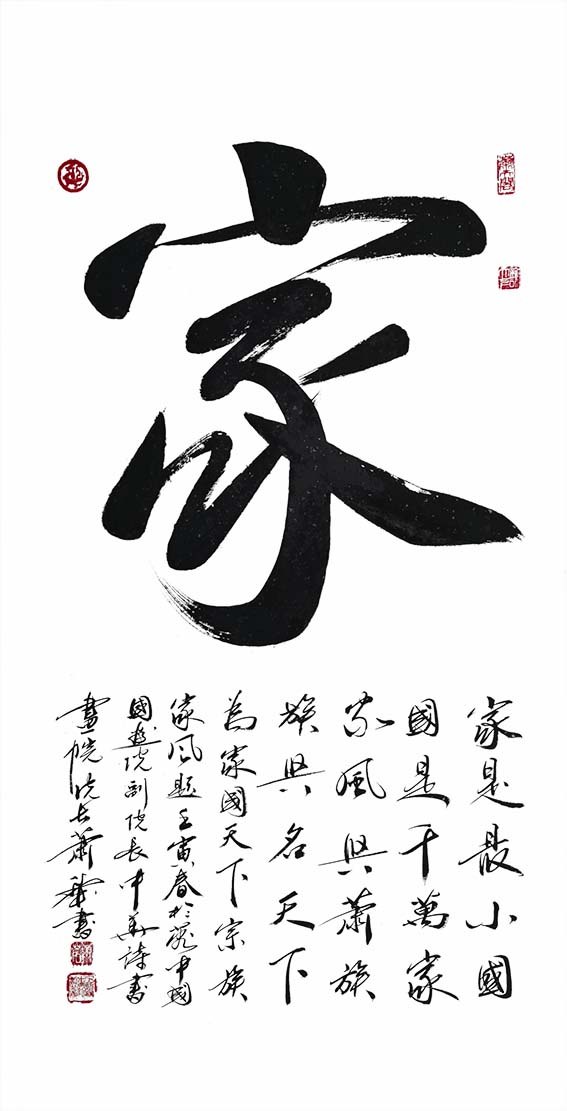 家
家是最小國
國是千萬家
家風興蕭族
族興名天下
為家國天下宗族
家风題壬寅春於中國
國院副院長中華詩書
畫院院長蕭書